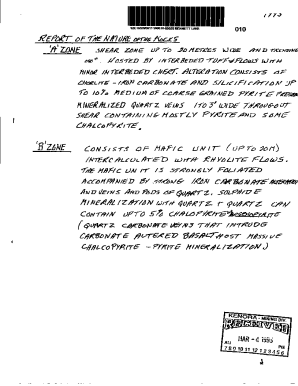 010
REPORT OF THE NATURE OF THE ROCKS
'A' ZONE SHEAR ZONE UP TO 30 METRES WIDE AND TRENDING
HOSTED BY INTERBEDED TUFFS FLOWS WITH
MINOR INTERBEDED CHERT. ALTERATION CONSISTS OF
CHLORITE - IRON CARBONATE AND SILICIFICATION UP
TO 10% MEDIUM OF COARSE GRAINED PYRITE
MINERALIZED QUARTZ VEINS 1 TO 3' WIDE THROUGHOUT
SHEAR CONTAINING MOSTLY PYRITE AND SOME
CHALCOPYRITE.
'B' ZONE CONSISTS OF MAFIC UNIT (UP TO 20M)
INTERCALCULATED WITH RHYOLITE FLOWS.
THE MAFIC UNIT IS STRONGLY FOLIATED
ACCOMPANIED BY STRONG IRON CARBONATE ALTERATION
AND VEINS AND PODS OF QUARTZ. SULPHIDE
MINERALIZATION WITH QUARTZ + QUARTZ CAN
CONTAIN UP TO 5% CHALOPYRITE
(QUARTZ CARBONATE VEINS THAT INTRUDE
CARBONATE ALTERED BASALT HOST MASSIVE
CHALCOPYRITE - PYRITE MINERALIZATION.)
KENORA - MINING DIV.
RECEIVED
MAR - 4 1993
AM PM
7 8 9 10 11 12 1 2 3 4 5 6